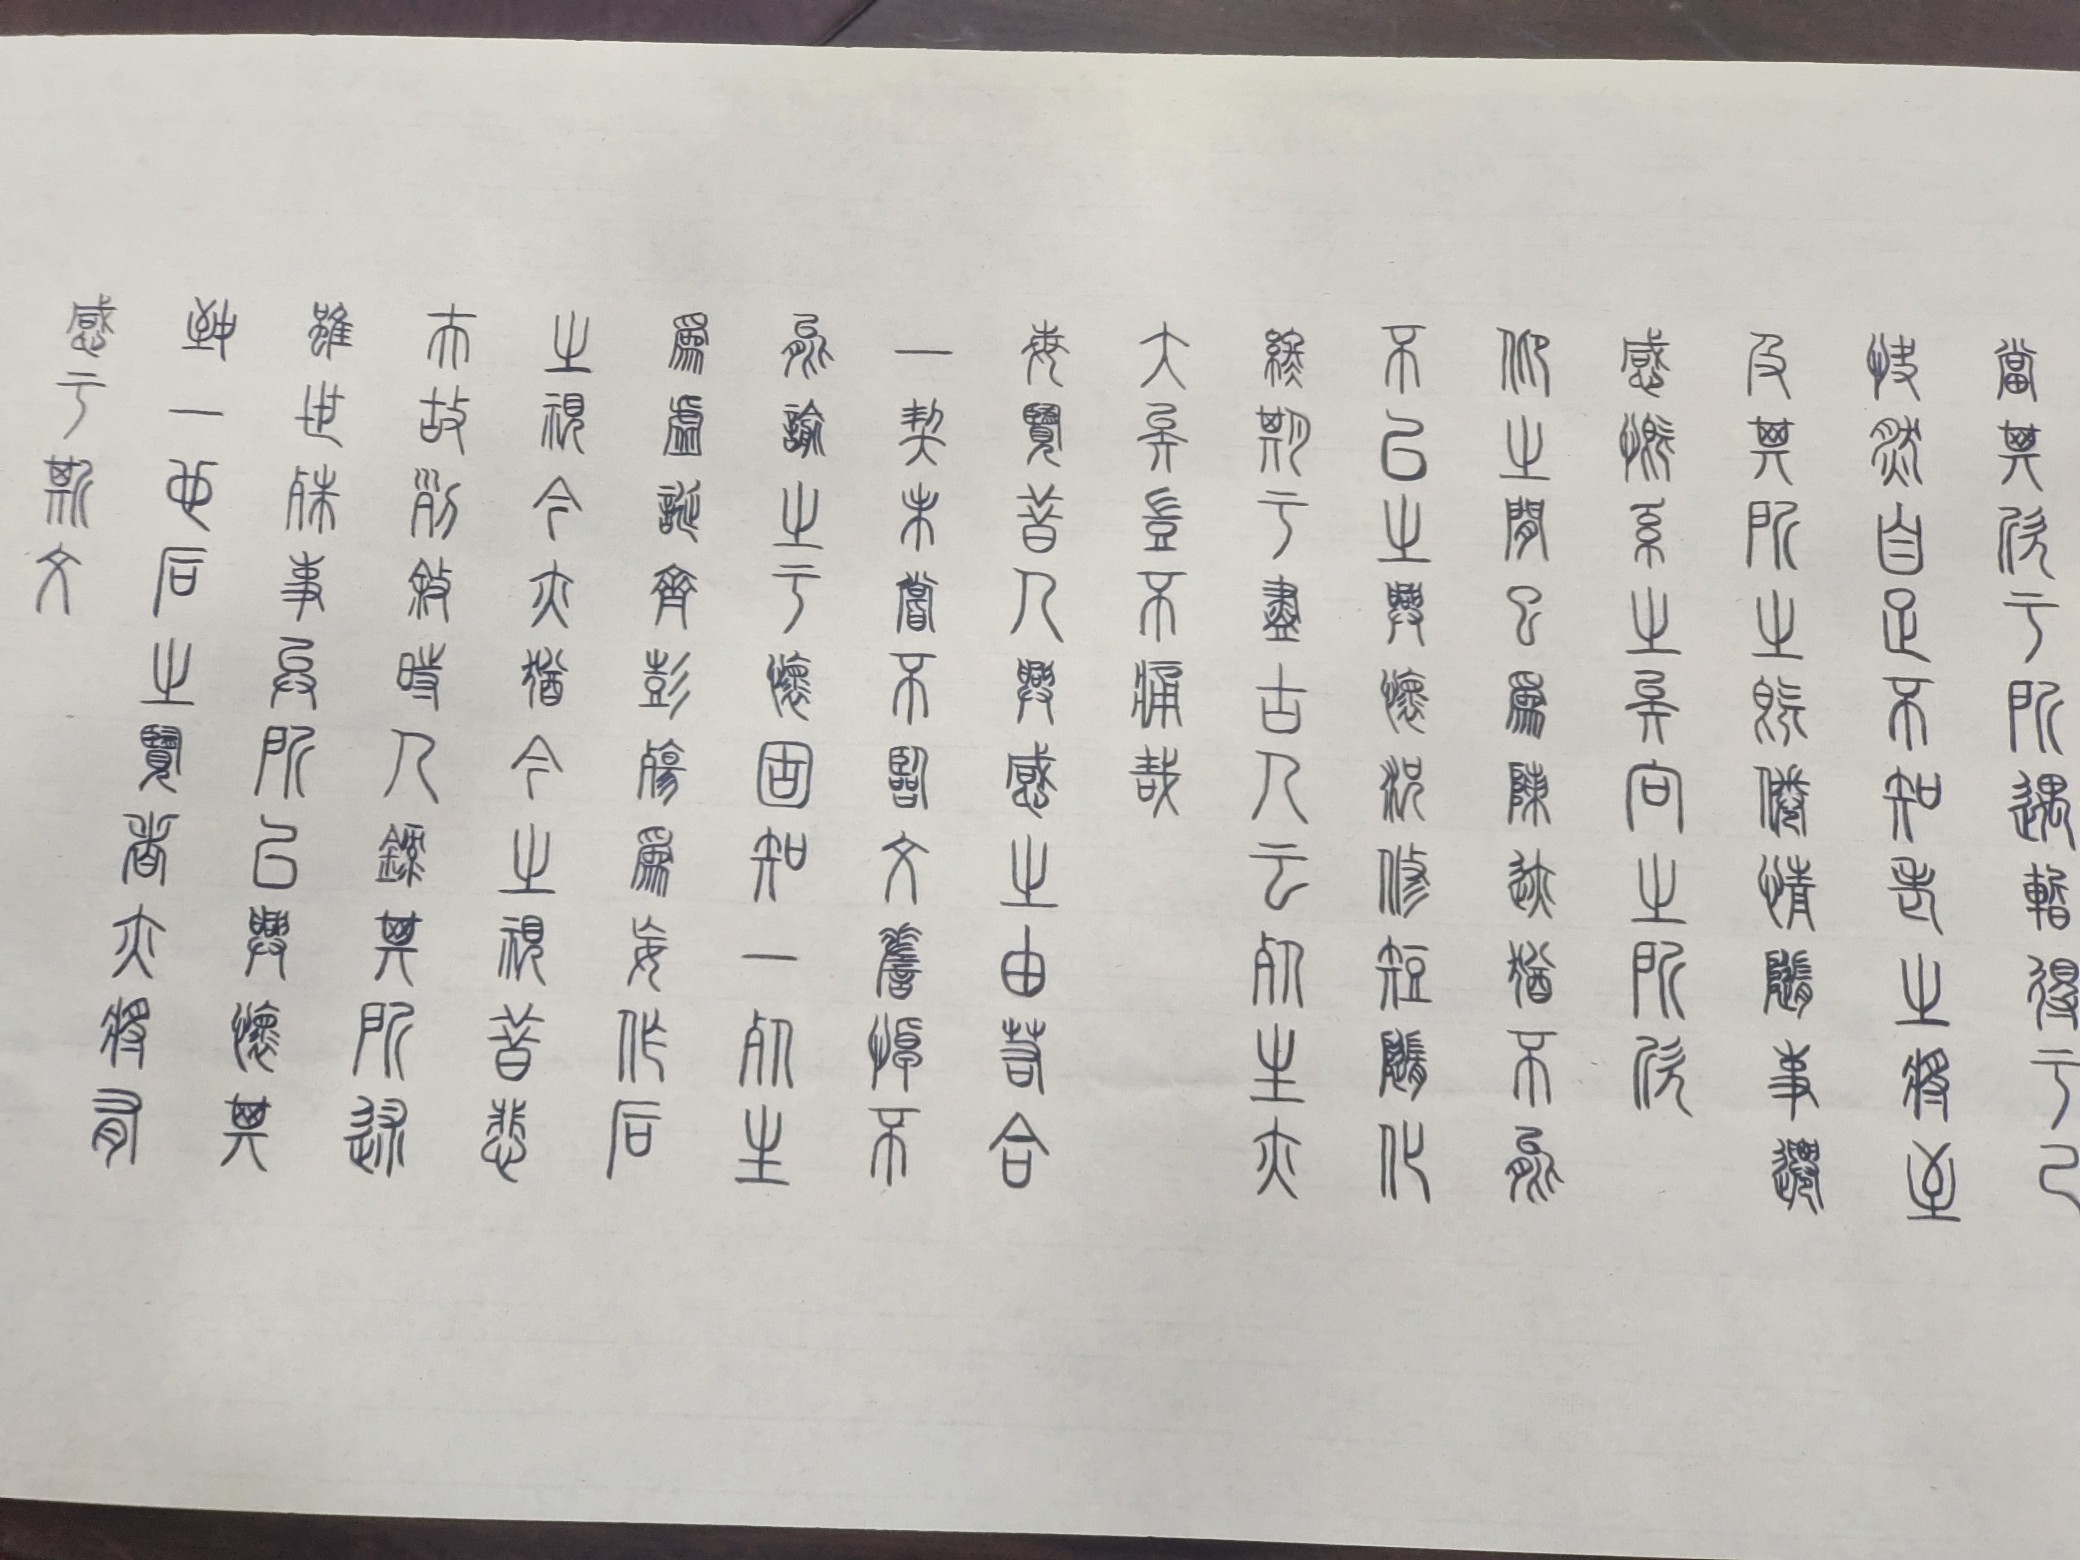 當其欣于所遇暫得于己
快然自足不知老之將至
及其所之既倦情隨事遷
感慨系之矣向之所欣
俛仰之閒已爲陳迹猶不能
不以之興懷況修短隨化
終期于盡古人云死生亦
大矣豈不痛哉
每覽昔人興感之由若合
一契未嘗不臨文嗟悼不
能喻之于懷固知一死生
爲虛誕齊彭殤爲妄作后
之視今亦猶今之視昔悲
夫故列敘時人錄其所述
雖世殊事異所以興懷其
致一也后之覽者亦將有
感于斯文